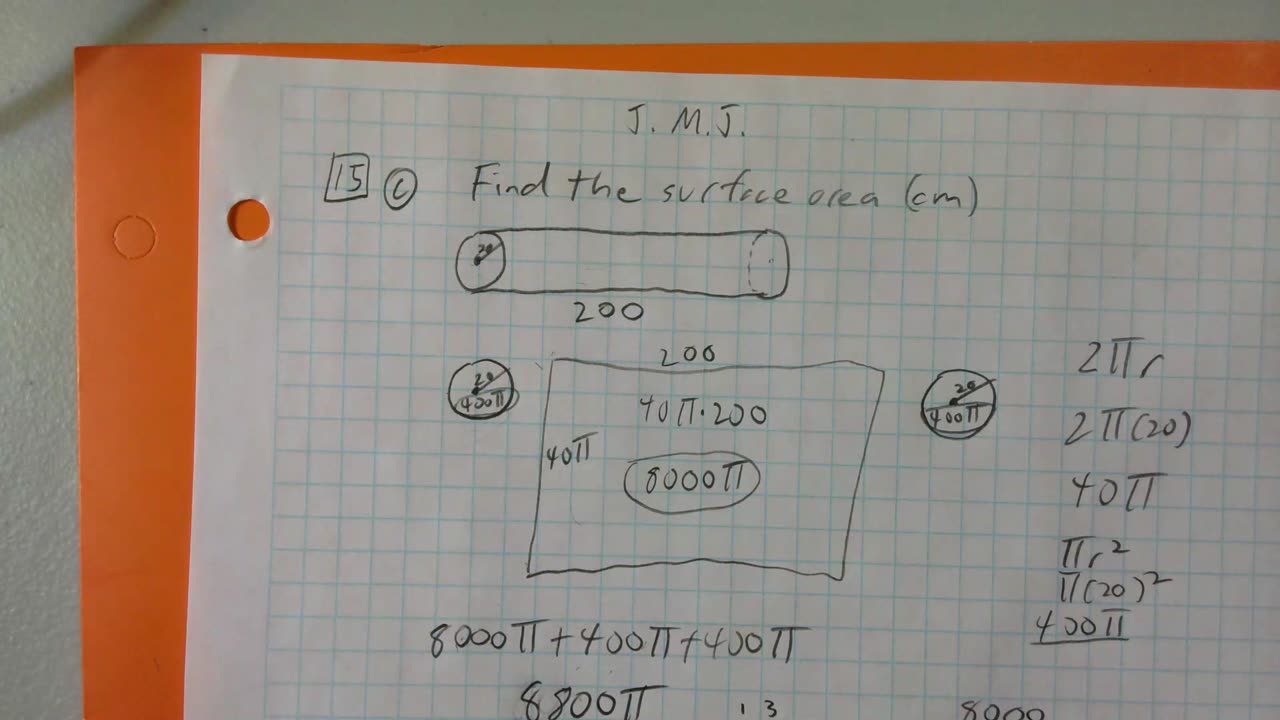 J. M. J.
15 c Find the surface area (cm)
20
200
200
20
400π
40π·200
40π
8000π
20
400π
2πr
2π(20)
40π
πr²
π(20)²
400π
8000π+400π+400π
8800π
1 3
8000